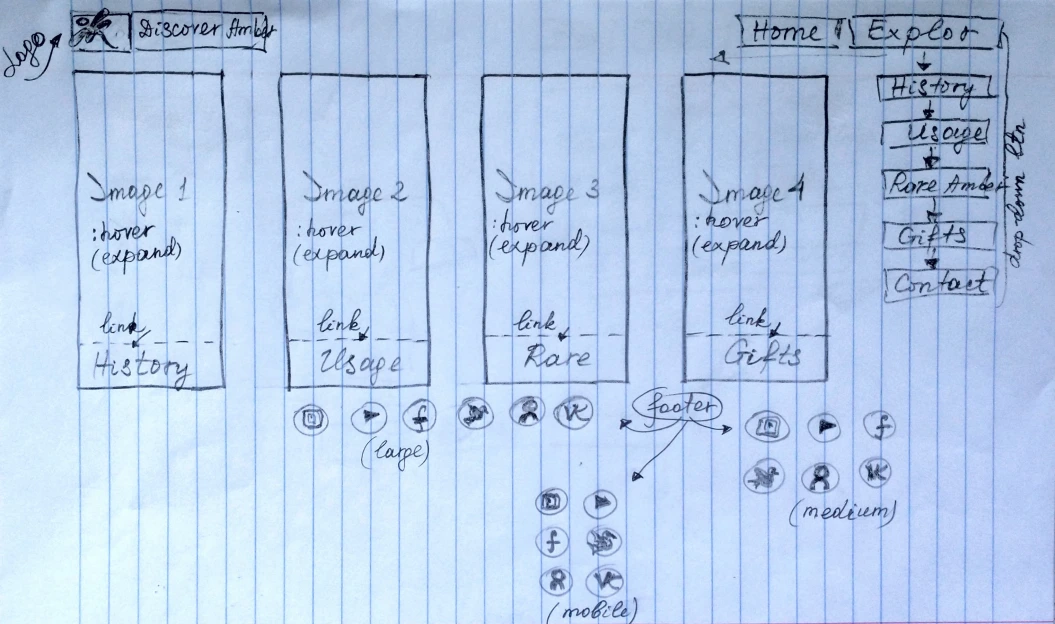 Logo
Discover Amber
Home
Explor
History
Usage
Rare Amber
Gifts
Contact
drop down btn
Image 1
:hover
(expand)
link
History
Image 2
:hover
(expand)
link
Usage
Image 3
:hover
(expand)
link
Rare
Image 4
:hover
(expand)
link
Gifts
f
VK
(large)
footer
f
VK
(medium)
f
VK
(mobile)